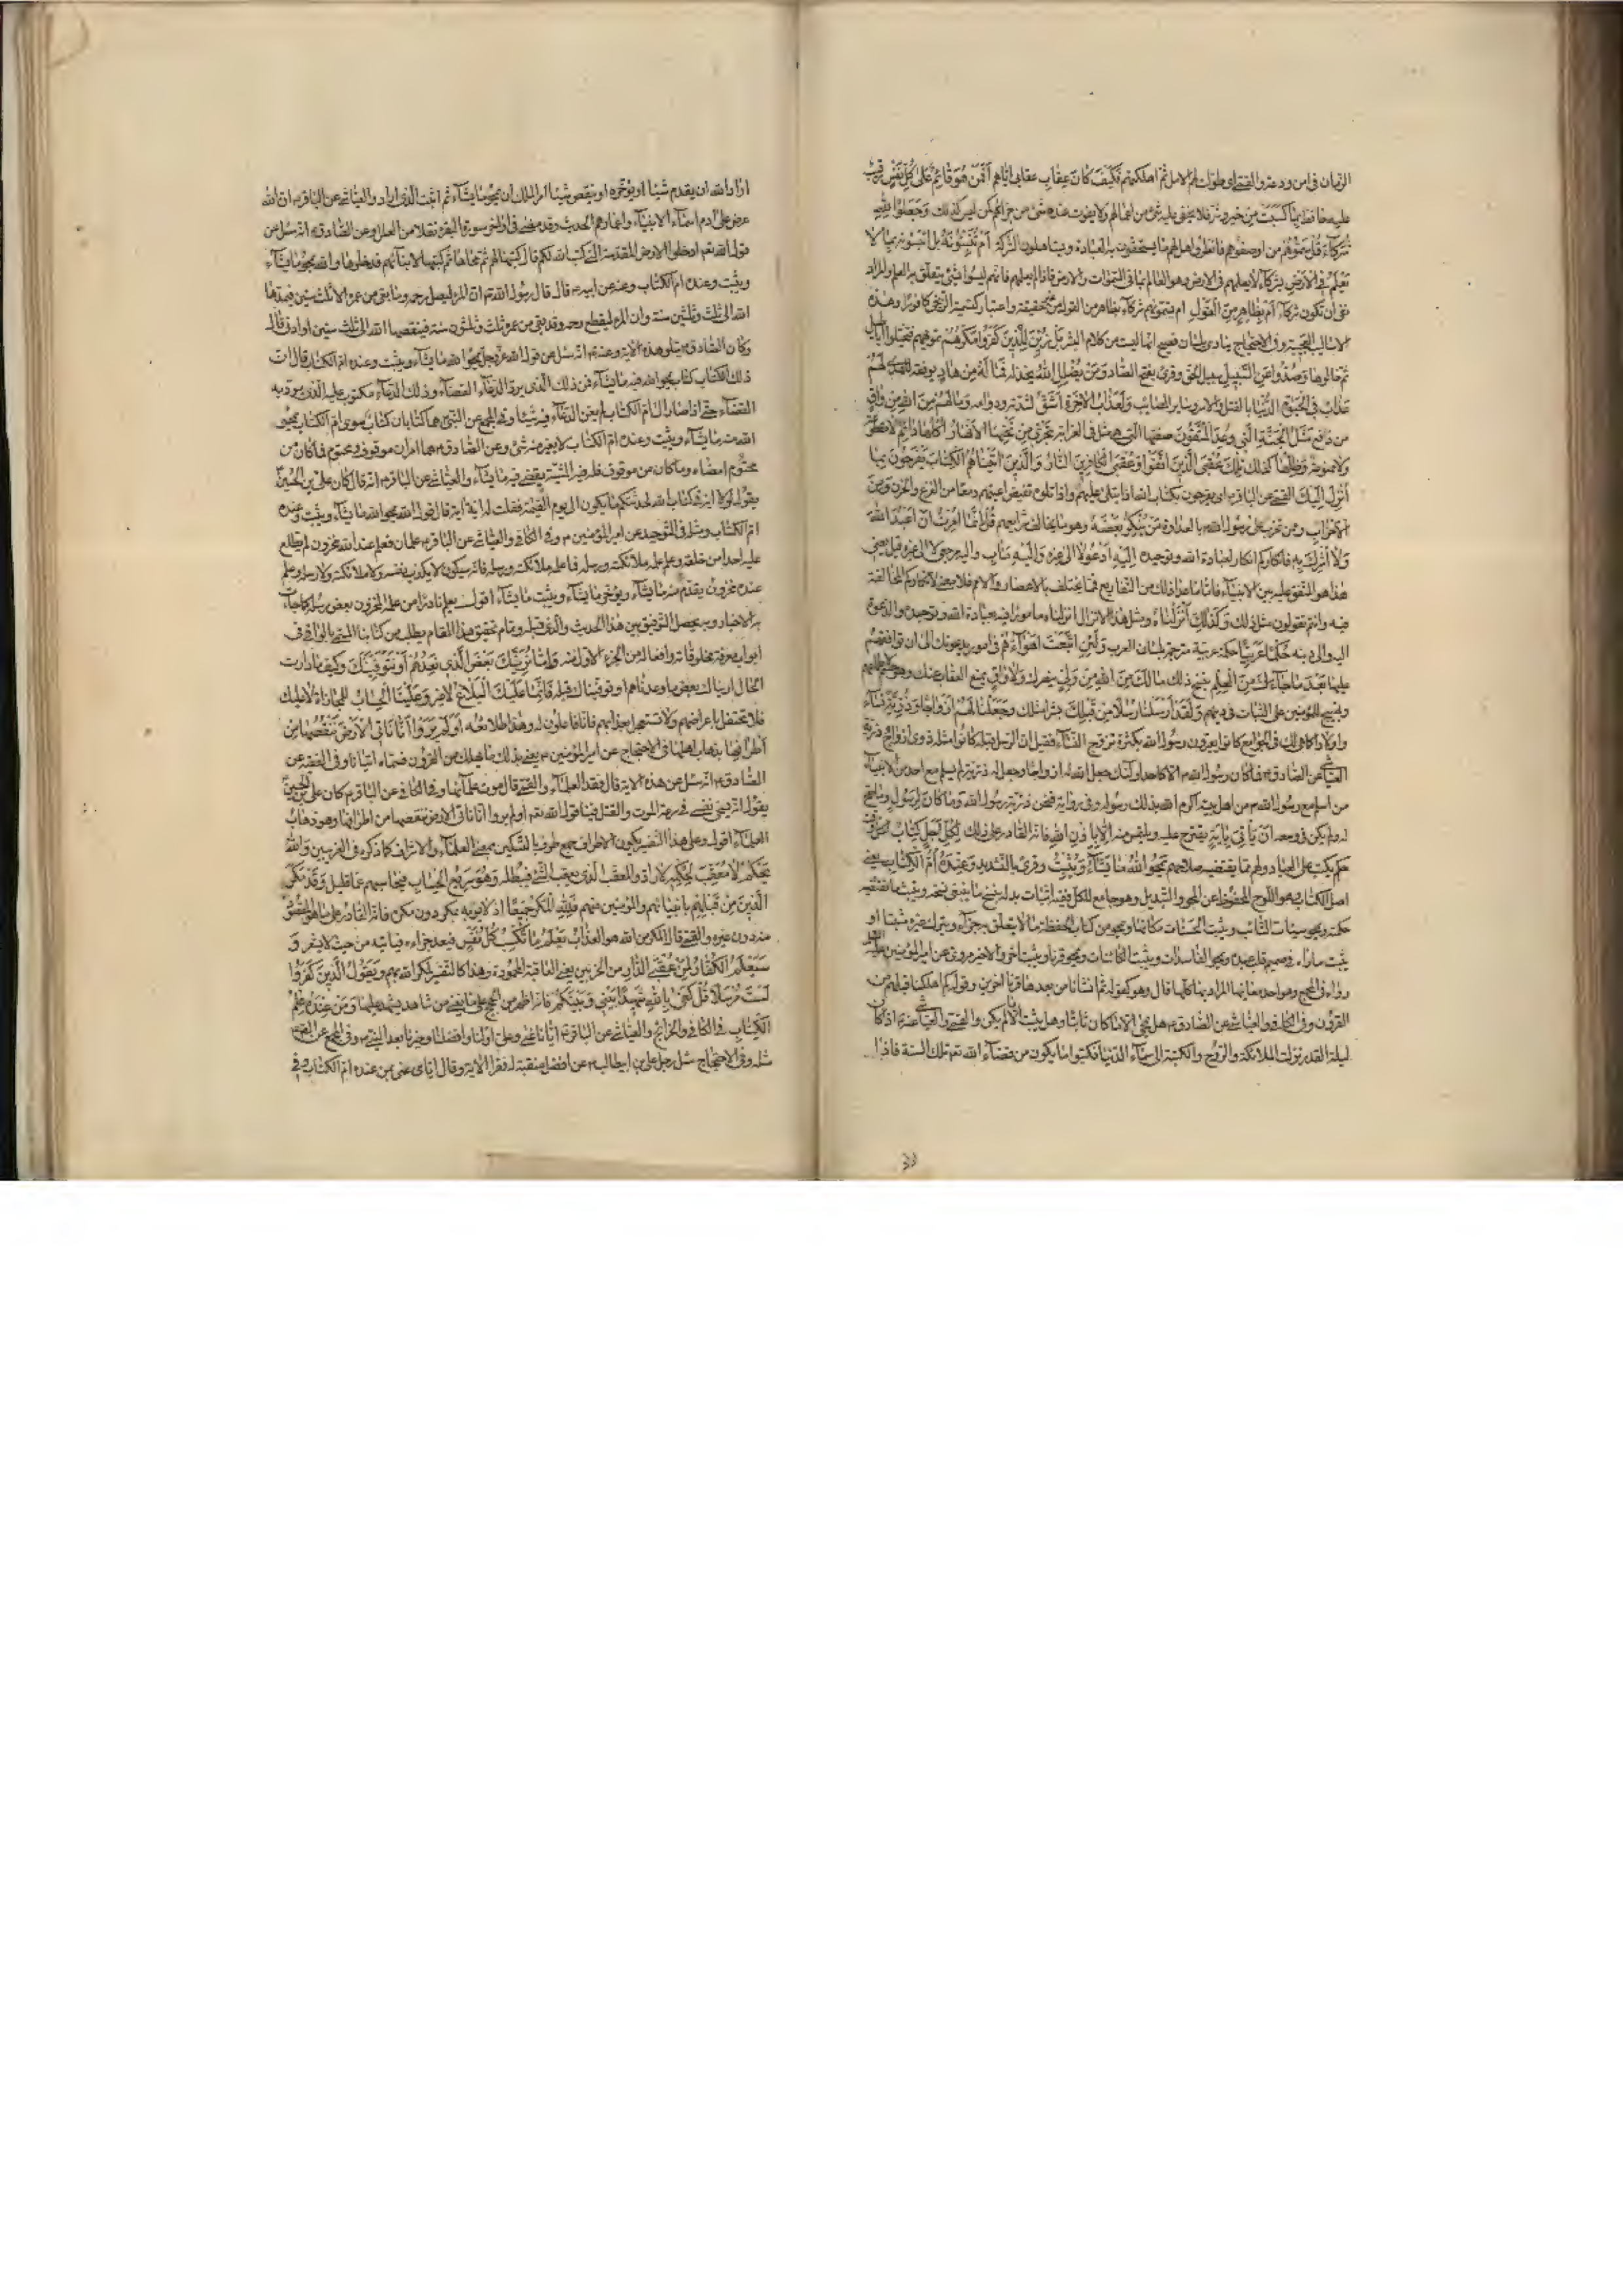 الزمان في امن ودعة والقمي اي طولت لهم الامل ثم اهلكتهم فَكَيْفَ كَانَ عِقَابِ عقابي اياهم أَفَمَنْ هُوَ قَائِمٌ عَلىٰ كُلِّ نَفْسٍ رقيب
عليه حافظ بِمَا كَسَبَتْ من خير وشر فلا يخفى عليه شئ من اعمالهم ولا يفوت عنده شئ من جزائهم كمن ليس كذلك وَجَعَلُوا لِلّٰهِ
شُرَكَاءَ قُلْ سَمُّوهُمْ من او صفوهم فانظروا هل لهم ما يستحقون به العبادة ويستاهلون الشركة أَمْ تُنَبِّئُونَهُ بل اتنبئونه بِمَا لَا
يَعْلَمُ فِي الْأَرْضِ بشركاء لا يعلمهم في الارض وهو العالم بما في السموات والارض فاذا لم يعلمهم فانهم ليسوا بشئ يتعلق به العلم والمراد
نفي ان تكون شركاء أَمْ بِظَاهِرٍ مِنَ الْقَوْلِ ام تسمونهم شركاء بظاهر من القول من حقيقة واعتبار كتسمية الزنجي كافورا وهذه
الاساليب العجيبة في الاحتجاج ينادي بلسان فصيح انها ليست من كلام البشر بَلْ زُيِّنَ لِلَّذِينَ كَفَرُوا مَكْرُهُمْ تمويههم فتخيلوا اباطيل
ثم خالوها وَصُدُّوا عَنِ السَّبِيلِ سبيل الحق وقرئ بفتح الصاد وَمَنْ يُضْلِلِ اللّٰهُ يخذله فَمَا لَهُ مِنْ هَادٍ يوفقه للهدى لَهُمْ
عَذَابٌ فِي الْحَيٰوةِ الدُّنْيَا بالقتل والاسر وساير المصائب وَلَعَذَابُ الْآخِرَةِ أَشَقُّ لشدته ودوامه وَمَا لَهُمْ مِنَ اللّٰهِ مِنْ وَاقٍ
من دافع مَثَلُ الْجَنَّةِ الَّتِي وُعِدَ الْمُتَّقُونَ صفتها التي هي مثل في الغرابة تَجْرِي مِنْ تَحْتِهَا الْأَنْهَارُ أُكُلُهَا دَائِمٌ لا مقطوعة
ولا ممنوعة وَظِلُّهَا كذلك تِلْكَ عُقْبَى الَّذِينَ اتَّقَوْا وَعُقْبَى الْكَافِرِينَ النَّارُ وَالَّذِينَ اٰتَيْنَاهُمُ الْكِتَابَ يَفْرَحُونَ بِمَا
أُنْزِلَ إِلَيْكَ القمي عن الباقر ع اي يفرحون بكتاب الله اذا يتلى عليهم واذا تلوه تفيض اعينهم دمعا من الفزع والحزن وَمِنَ
الْأَحْزَابِ ومن تحزب على رسول الله بالعداوة مَنْ يُنْكِرُ بَعْضَهُ وهو ما يخالف شرايعهم قُلْ إِنَّمَا أُمِرْتُ أَنْ أَعْبُدَ اللّٰهَ
وَلَا أُشْرِكَ بِهِ فانكاركم انكار لعبادة الله وتوحيده إِلَيْهِ أَدْعُوا لا الى غيره وَإِلَيْهِ مَئَابِ واليه مرجعي لا الى غيره قيل يعني
هذا هو المتفق عليه بين الانبياء فاما ما عدا ذلك من التفاريع فمما يختلف بالاعصار والامم فلا معنى لانكاركم المخالفة
فيه وانتم تقولون مثل ذلك وَكَذٰلِكَ أَنْزَلْنَاهُ ومثل هذا الانزال انزلناه مامورا فيه بعبادة الله وتوحيده والدعوة
اليه والى دينه حُكْمًا عَرَبِيًّا حكمة عربية مترجمة بلسان العرب وَلَئِنِ اتَّبَعْتَ أَهْوَاءَهُمْ في امور يدعونك الى ان توافقهم
عليها بَعْدَ مَا جَاءَكَ مِنَ الْعِلْمِ بنسخ ذلك مَا لَكَ مِنَ اللّٰهِ مِنْ وَلِيٍّ ينصرك وَلَا وَاقٍ يمنع العقاب عنك وهو حسم لاطماعهم
وتهييج للمؤمنين على الثبات في دينهم وَلَقَدْ أَرْسَلْنَا رُسُلًا مِنْ قَبْلِكَ بشرا مثلك وَجَعَلْنَا لَهُمْ أَزْوَاجًا وَذُرِّيَّةً نساء
واولادا كما هي لك في الجوامع كانوا يعيرون رسول الله بكثرة تزوج النساء فقيل ان الرسل قبله كانوا مثله ذوي ازواج وذرية
العياشي عن الصادق ع فما كان رسول الله ص الا كاحد اولئك جعل الله له ازواجا وجعل له ذرية ثم لم يسلم مع احد من الانبياء
من اسلم مع رسول الله ص من اهل بيته اكرم الله بذلك رسوله وفي رواية فنحن ذرية رسول الله وَمَا كَانَ لِرَسُولٍ وما صح
له ولم يكن في وسعه أَنْ يَأْتِيَ بِآيَةٍ يقترح عليه ويلتمس منه إِلَّا بِإِذْنِ اللّٰهِ فانه القادر على ذلك لِكُلِّ أَجَلٍ كِتَابٌ لكل وقت
حكم يكتب على العباد ولهم ما يقتضيه صلاحهم يَمْحُوا اللّٰهُ مَا يَشَاءُ وَيُثْبِتُ وقرئ بالتشديد وَعِنْدَهُ أُمُّ الْكِتَابِ يعني
اصل الكتاب وهو اللوح المحفوظ عن المحو والتبديل وهو جامع للكل ففيه اثبات بدله ينسخ ما ينبغي نسخه ويثبت ما تقتضيه
حكمته ويمحو سيئات التائب ويثبت الحسنات مكانها ويمحو من كتاب الحفظة ما لا يتعلق به جزاء ويترك غيره مثبتا او
يثبت ما راه في صميم قلب عبده ويمحو الفاسدات ويثبت الكائنات ويمحو قرنا ويثبت اخر والاخير مروي عن امير المؤمنين عليه السلام
رواه في المجمع وهو احد معانيها المراد بها كلها قال وهو كقوله ثم انشانا من بعدهم قرنا اخرين وقوله كم اهلكنا قبلهم من
القرون وفي الكافي والعياشي عن الصادق ع هل يمحى الا ما كان ثابتا وهل يثبت الا ما لم يكن والقمي والعياشي عنه ع اذا كان
ليلة القدر نزلت الملائكة والروح والكتبة الى سماء الدنيا فيكتبوا ما يكون من قضاء الله تعم تلك السنة فاذا
اراد الله ان يقدم شيئا او يؤخره او ينقص شيئا امر الملك ان يمحو ما يشاء ثم اثبت الذي اراد والعياشي عن الباقر ع ان الله
عرض على ادم اسماء الانبياء واعمارهم الحديث وقد مضى في اواخر سورة البقرة نقلا من العلل وعن الصادق ع انه سئل عن
قول الله تعم ادخلوا الارض المقدسة التي كتب الله لكم قال كتبها لهم ثم محاها ثم كتبها لابنائهم فدخلوها والله يمحو ما يشاء
ويثبت وعنده ام الكتاب وعنه عن ابيه ع قال قال رسول الله ص ان المرء ليصل رحمه وما بقي من عمره الا ثلث سنين فيمدها
الله الى ثلث وثلثين سنة وان المرء ليقطع رحمه وقد بقي من عمره ثلث وثلثون سنة فينقصها الله الى ثلث سنين او ادنى قال
وكان الصادق ع يتلو هذه الاية وعنه ع انه سئل عن قول الله عز وجل يمحو الله ما يشاء ويثبت وعنده ام الكتاب قال ان
ذلك الكتاب كتاب يمحو الله فيه ما يشاء فمن ذلك الذي يرد الدعاء القضاء وذلك الدعاء مكتوب عليه الذي يرد به
القضاء حتى اذا صار الى ام الكتاب لم يغن الدعاء فيه شيئا وفي المجمع عن النبي ص هما كتابان كتاب سوى ام الكتاب يمحو
الله منه ما يشاء ويثبت وعنده ام الكتاب لا يغير منه شئ وعن الصادق ع هما امران موقوف ومحتوم فما كان من
محتوم امضاه وما كان من موقوف فله فيه المشية يقضي فيه ما يشاء والعياشي عن الباقر ع انه قال كان علي بن الحسين ع
يقول لولا اية في كتاب الله لحدثتكم بما يكون الى يوم القيمة فقلت له اية اية قال قول الله يمحو الله ما يشاء ويثبت وعنده
ام الكتاب ومثله في التوحيد عن امير المؤمنين ع وفي الكافي والعياشي عن الباقر ع علمان فعلم عند الله مخزون لم يطلع
عليه احدا من خلقه وعلم علمه ملائكته ورسله فما علمه ملائكته ورسله فانه سيكون لا يكذب نفسه ولا ملائكته ولا رسله وعلم
عنده مخزون يقدم منه ما يشاء ويؤخر ما يشاء ويثبت ما يشاء اقول يعلم نادرا من علمه المخزون بعض رسله كما جاءت
به الاخبار وبه يحصل التوفيق بين هذا الحديث والذي قبله وتمام تحقيق هذا المقام يطلب من كتابنا المسمى بالوافي في
ابواب معرفة مخلوقاته وافعاله من الجزء الاول منه وَإِمَّا نُرِيَنَّكَ بَعْضَ الَّذِي نَعِدُهُمْ أَوْ نَتَوَفَّيَنَّكَ وكيف ما دارت
الحال اريناك بعض ما وعدناهم او توفيناك قبله فَإِنَّمَا عَلَيْكَ الْبَلَاغُ لا غير وَعَلَيْنَا الْحِسَابُ للمجازاة لا عليك
فلا تحتفل باعراضهم ولا تستعجل بعذابهم فانا فاعلون له وهذا طلائعه أَوَلَمْ يَرَوْا أَنَّا نَأْتِي الْأَرْضَ نَنْقُصُهَا مِنْ
أَطْرَافِهَا بذهاب اهلها في الاحتجاج عن امير المؤمنين ع يعني بذلك ما يهلك من القرون فسماه اتيانا وفي الفقيه عن
الصادق ع انه سئل عن هذه الاية قال فقد العلماء والقمي قال موت علمائها وفي الكافي عن الباقر ع كان علي بن الحسين
يقول انه يسخى نفسي في سرعة الموت والقتل فينا قول الله تعم اولم يروا انا ناتي الارض ننقصها من اطرافها وهو ذهاب
العلماء اقول وعلى هذا التفسير يكون الاطراف جمع طرف بالتسكين بمعنى العلماء والاشراف كما ذكره في الغريبين وَاللّٰهُ
يَحْكُمُ لَا مُعَقِّبَ لِحُكْمِهِ لا راد والمعقب الذي يعقب الشئ فيبطله وَهُوَ سَرِيعُ الْحِسَابِ فيحاسبهم عما قليل وَقَدْ مَكَرَ
الَّذِينَ مِنْ قَبْلِهِمْ بانبيائهم والمؤمنين منهم فَلِلّٰهِ الْمَكْرُ جَمِيعًا اذ لا يؤبه بمكر دون مكره فانه القادر على ما هو المقصود
منه دون غيره والقمي قال المكر من الله هو العذاب يَعْلَمُ مَا تَكْسِبُ كُلُّ نَفْسٍ فيعد جزاءه فياتيه من حيث لا يشعر وَ
سَيَعْلَمُ الْكُفَّارُ لِمَنْ عُقْبَى الدَّارِ من الحزبين يعني العاقبة المحمودة وهذا كالتفسير لمكر الله بهم وَيَقُولُ الَّذِينَ كَفَرُوا
لَسْتَ مُرْسَلًا قُلْ كَفَى بِاللّٰهِ شَهِيدًا بَيْنِي وَبَيْنَكُمْ فانه اظهر من الحجج على ما يغني من شاهد يشهد عليها وَمَنْ عِنْدَهُ عِلْمُ
الْكِتَابِ في الكافي والخرائج والعياشي عن الباقر ع ايانا عنى وعلي اولنا وافضلنا وخيرنا بعد النبي ص وفي المجمع عن الصادق ع
مثله وفي الاحتجاج سئل رجل علي بن ابيطالب ع عن افضل منقبة له فقرا الاية وقال اياي عنى بمن عنده ام الكتاب وفي